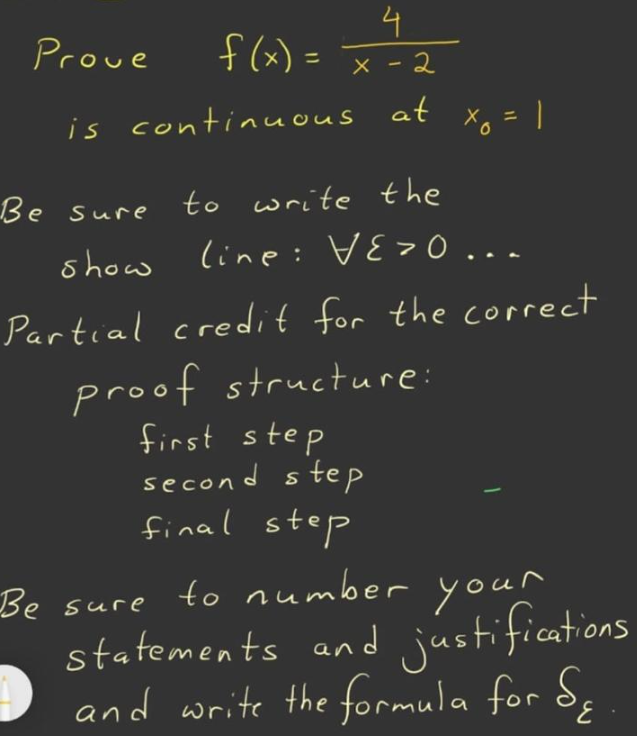 Prove f(x) = 4 / (x - 2)
is continuous at x₀ = 1
Be sure to write the
show line: ∀ε > 0 ...
Partial credit for the correct
proof structure:
first step
second step
final step
Be sure to number your
statements and justifications
and write the formula for δ_ε.